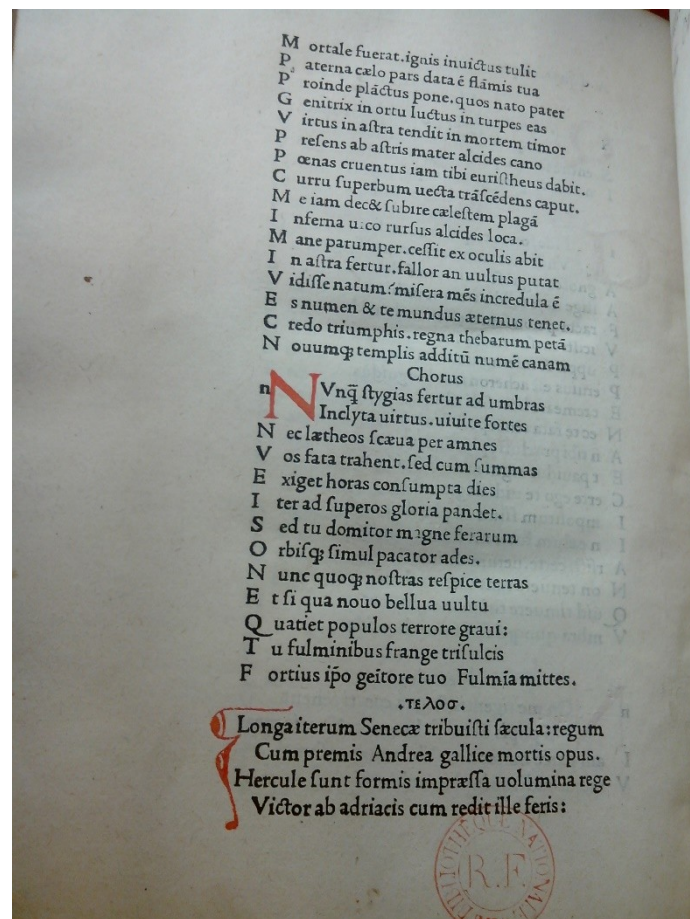 M ortale fuerat.ignis inuictus tulit
P aterna cælo pars data ē flāmis tua
P roinde plāctus pone.quos nato pater
G enitrix in ortu luctus in turpes eas
V irtus in astra tendit in mortem timor
P resens ab astris mater alcides cano
P œnas cruentus iam tibi euristheus dabit.
C urru superbum uecta trāscēdens caput.
M e iam dec& subire cælestem plagā
I nferna uico rursus alcides loca.
M ane parumper.cessit ex oculis abit
I n astra fertur.fallor an uultus putat
V idisse natum? misera mēs incredula ē
E s numen & te mundus æternus tenet.
C redo triumphis.regna thebarum petā
N ouumq; templis additū numē canam
Chorus
n NVnq̄ stygias fertur ad umbras
Inclyta uirtus.uiuite fortes
N ec lætheos scæua per amnes
V os fata trahent.sed cum summas
E xiget horas consumpta dies
I ter ad superos gloria pandet.
S ed tu domitor magne ferarum
O rbisq; simul pacator ades.
N unc quoq; nostras respice terras
E t si qua nouo bellua uultu
Q uatiet populos terrore graui:
T u fulminibus frange trisulcis
F ortius ip̄o geītore tuo Fulmīa mittes.
.ΤΕΛΟΣ.
Longa iterum Senecæ tribuisti sæcula:regum
Cum premis Andrea gallice mortis opus.
Hercule sunt formis impræssa uolumina rege
Victor ab adriacis cum redit ille feris:
BIBLIOTHEQUE NATIONALE
R.F.